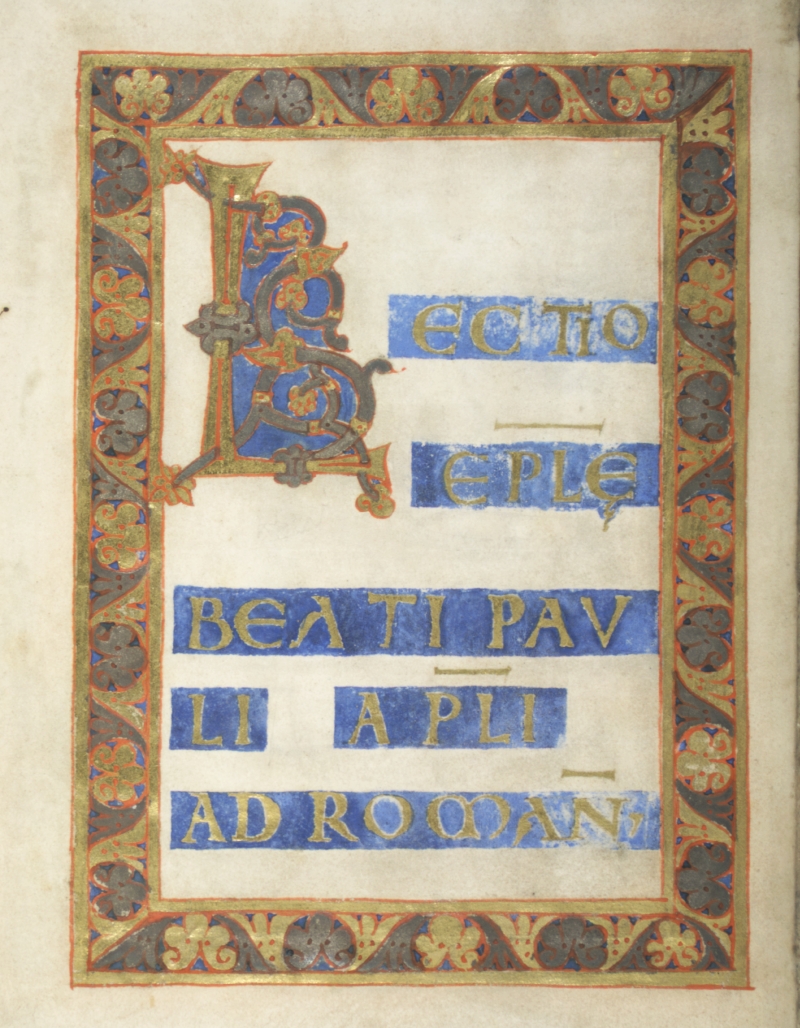 LECTIO
EPLĘ
BEATI PAV
LI APLI
AD ROMAN,